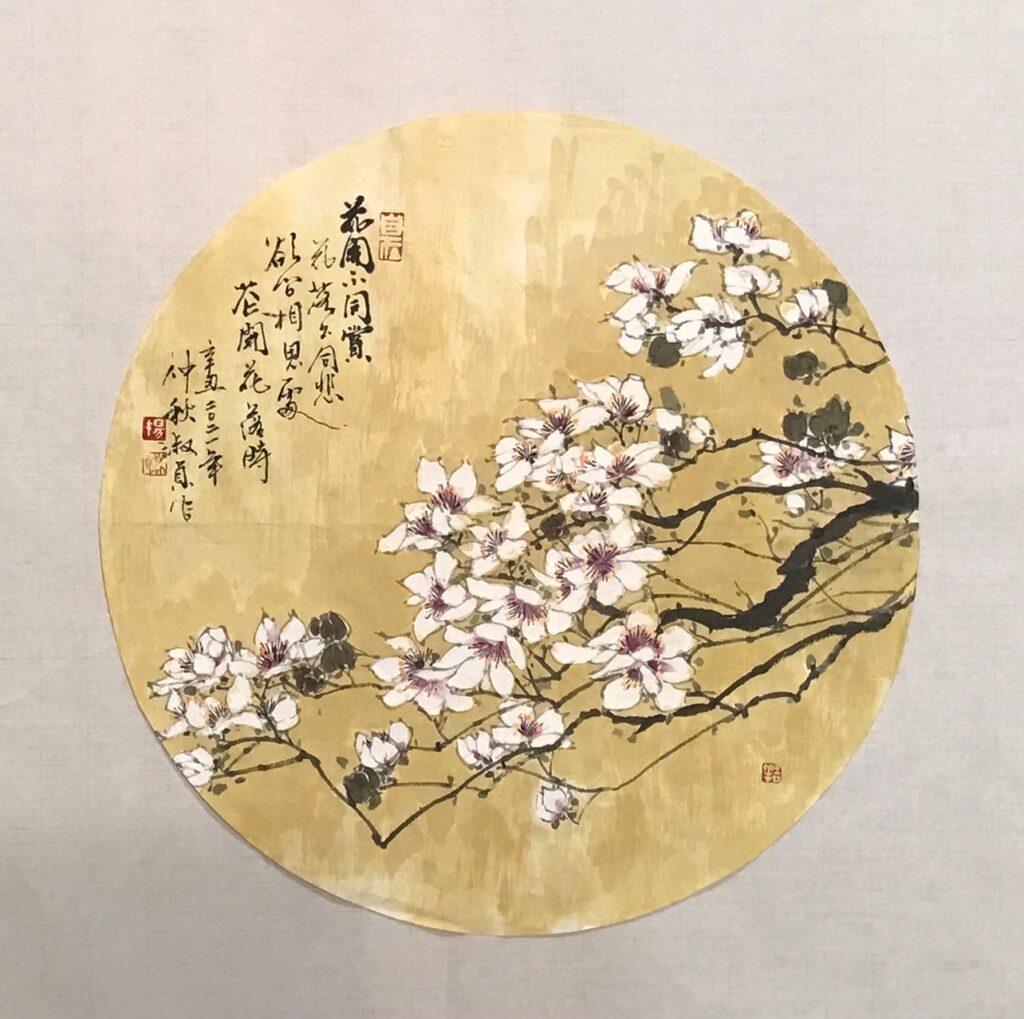 花開不同賞
花落不同悲
欲問相思處
花開花落時
辛丑二〇二一年
仲秋叔貞作
楊